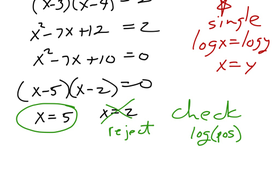 (x-3)(x-4) = 2
x² - 7x + 12 = 2
x² - 7x + 10 = 0
(x-5)(x-2) = 0
x = 5 x = 2
reject
single
log x = log y
x = y
check
log(pos)